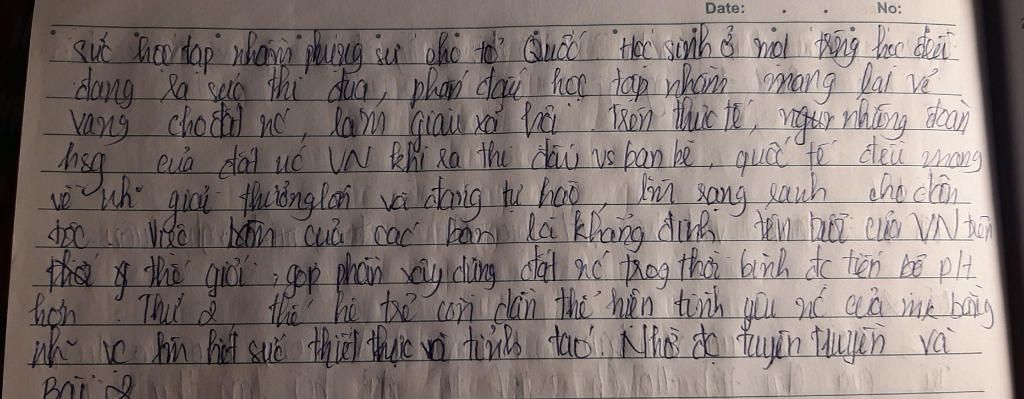 Date: . . No:
sức học tập nhằm phụng sự cho tổ Quốc. Học sinh ở mọi trg học đều
đang ra sức thi đua, phấn đấu học tập nhằm mang lại vẻ
vang cho đất nc, làm giàu xã hội. Trên thực tế, ngay những đoàn
hsg của đất nc VN khi ra thi đấu vs bạn bè quốc tế đều mang
về nh giải thưởng lớn và đáng tự hào, làm rạng ranh cho dân
tộc. Việc làm của các bạn là khẳng định tên tuổi của VN trên
thế giới, góp phần xây dựng đất nc trog thời bình đc tiến bộ pht
hơn. Thứ 2 thế hệ trẻ còn dần thể hiện tình yêu nc của mk bằng
nh~ vc làm hết sức thiết thực và tỉnh táo. Nhờ đc tuyên truyền và
Bài 2